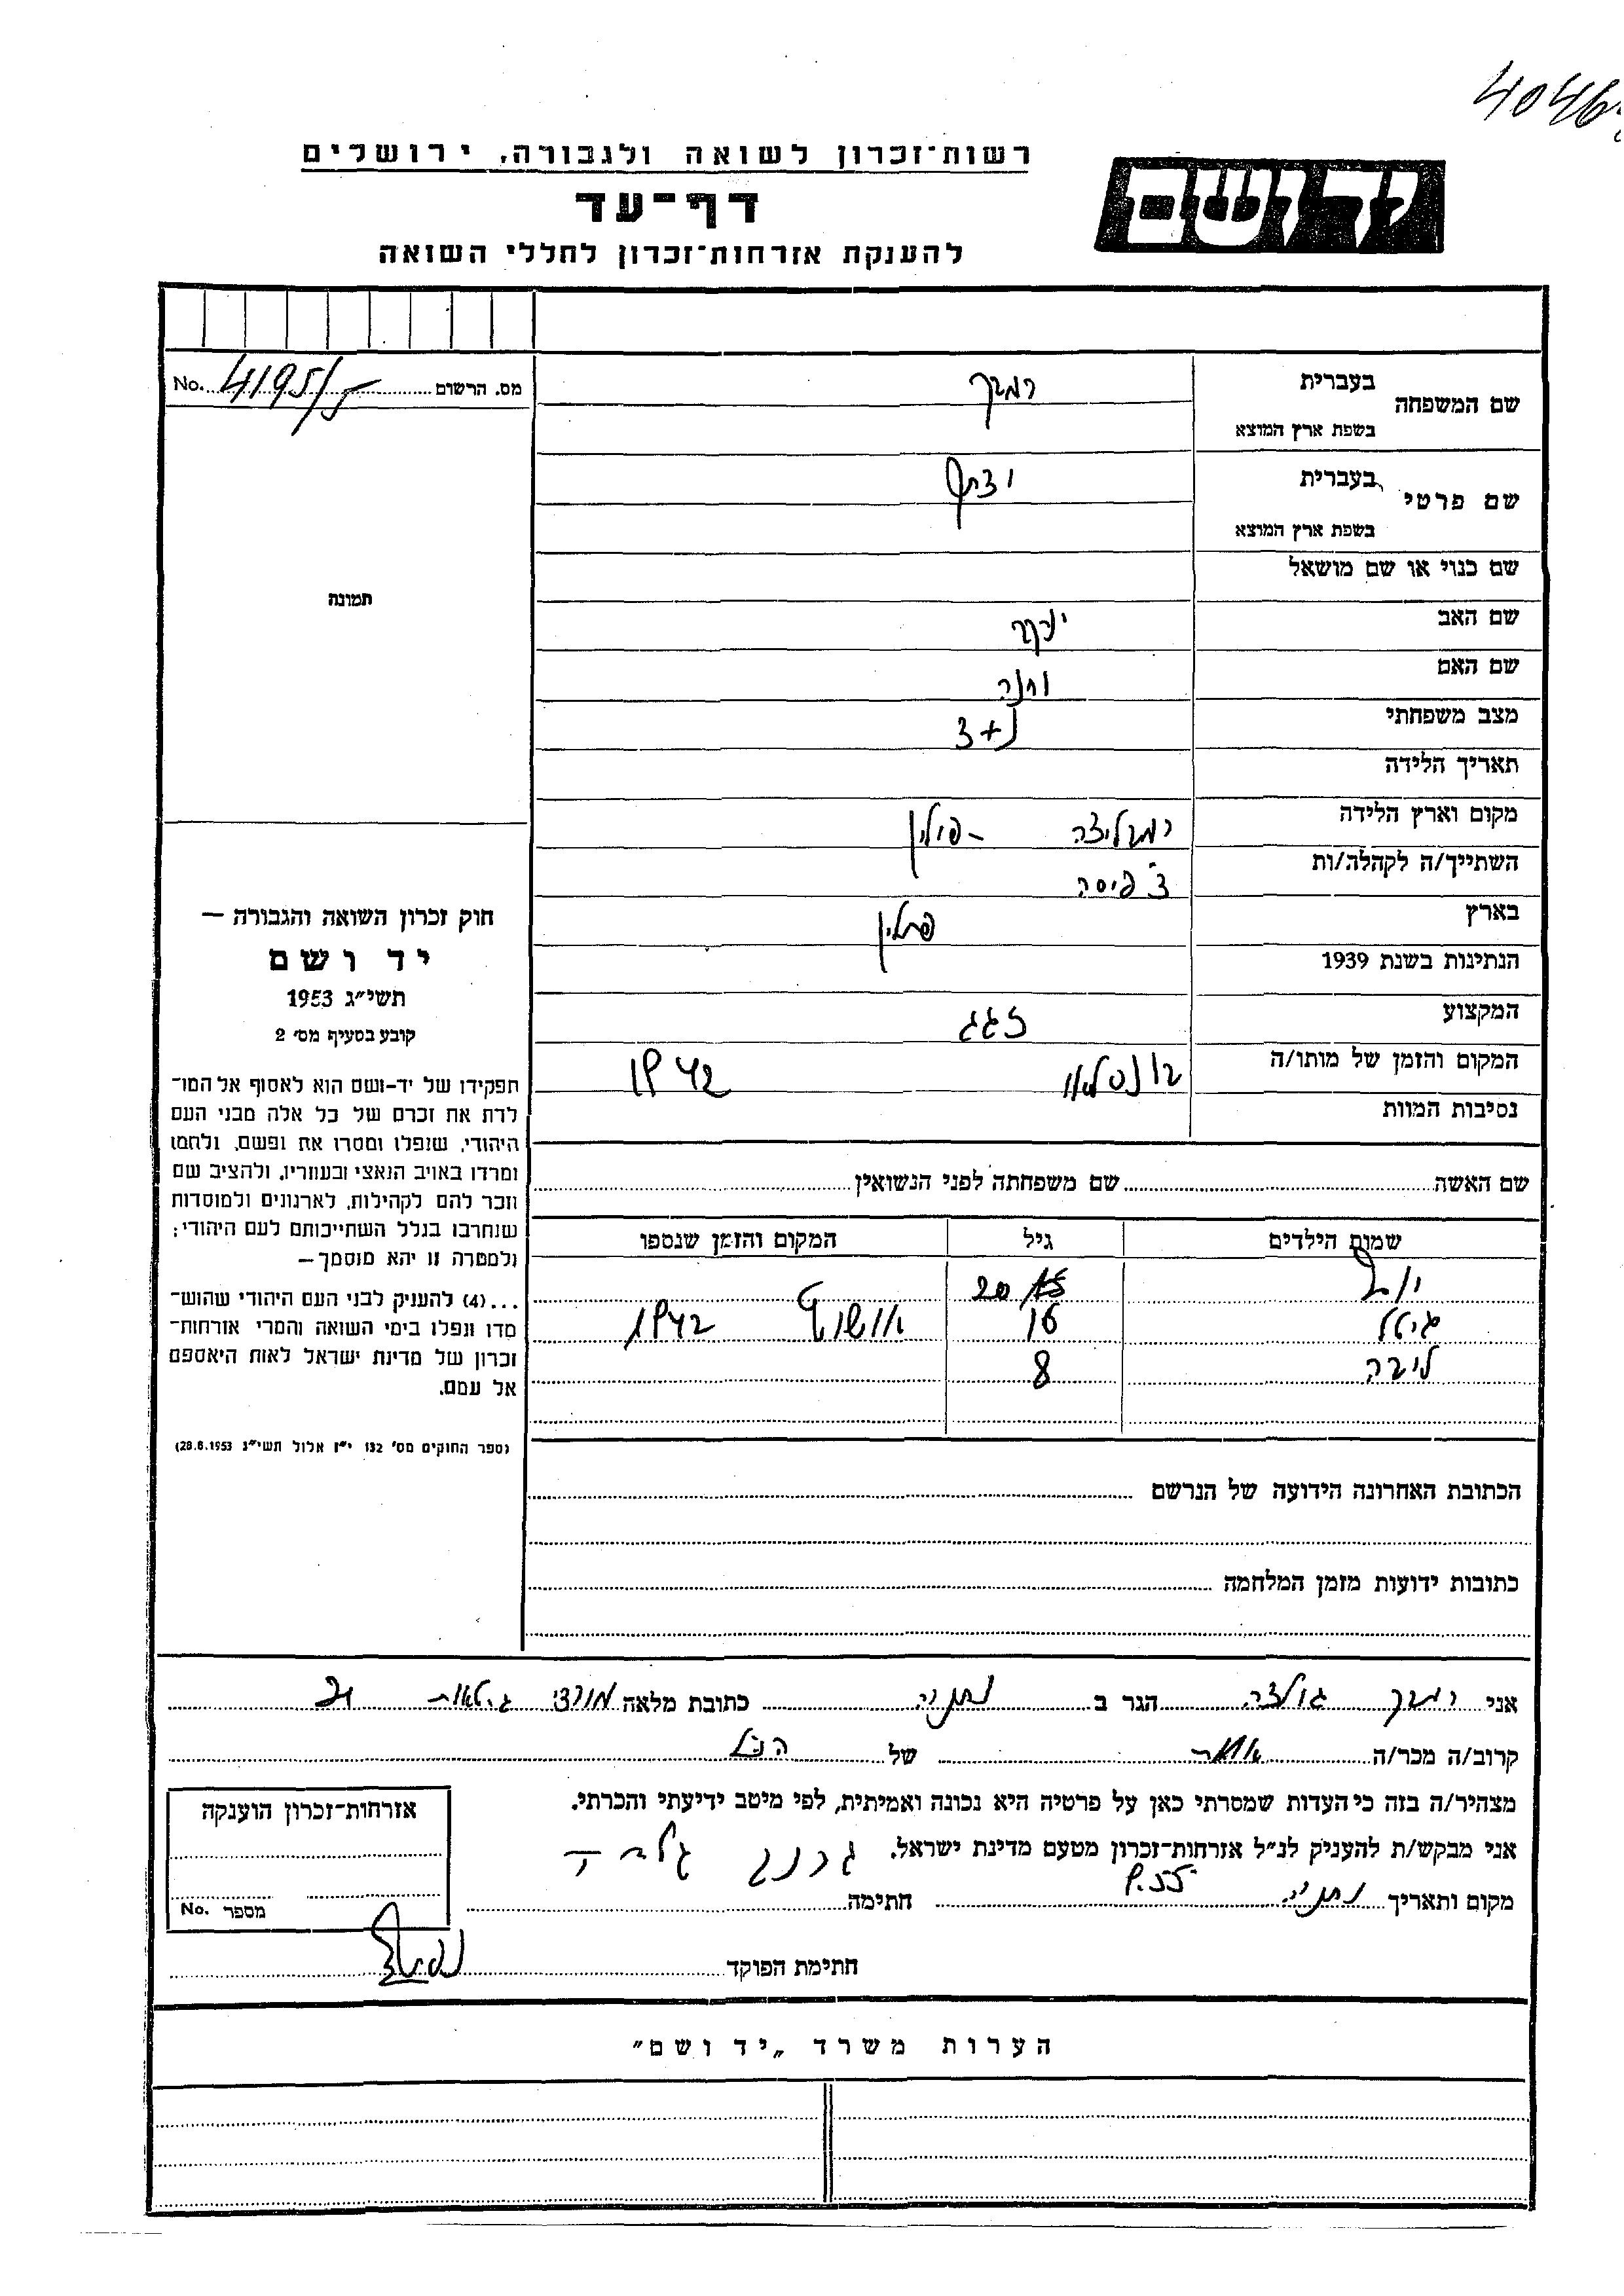 4046
רשות־זכרון לשואה ולגבורה, ירושלים
יד ושם
דף־עד
להענקת אזרחות־זכרון לחללי השואה
מס. הרשום No. 4195/
שם המשפחה בעברית
בשפת ארץ המוצא
שם פרטי בעברית
בשפת ארץ המוצא
שם כנוי או שם מושאל
תמונה
שם האב יעקב
שם האם חנה
מצב משפחתי נ+3
תאריך הלידה
מקום וארץ הלידה - פולין
השתייך/ה לקהלה/ות
בארץ פולין
הנתינות בשנת 1939
המקצוע זגג
המקום והזמן של מותו/ה 1942
נסיבות המוות
חוק זכרון השואה והגבורה —
יד ושם
תשי״ג 1953
קובע בסעיף מס׳ 2
תפקידו של יד־ושם הוא לאסוף אל המו־
לדת את זכרם של כל אלה מבני העם
היהודי, שנפלו ומסרו את נפשם, נלחמו
ומרדו באויב הנאצי ובעוזריו, ולהציב שם
וזכר להם לקהילות, לארגונים ולמוסדות
שנחרבו בגלל השתייכותם לעם היהודי;
ולמטרה זו יהא מוסמך—
...(4) להעניק לבני העם היהודי שהוש־
מדו ונפלו בימי השואה והמרי אזרחות־
זכרון של מדינת ישראל לאות היאספם
אל עמם.
(ספר החוקים מס׳ 132 י״ז אלול תשי״ג 28.8.1953)
שם האשה שם משפחתה לפני הנשואין
שמות הילדים גיל המקום והזמן שנספו
20
גיטל 16 1942
ליבה 8
הכתובת האחרונה הידועה של הנרשם
כתובות ידועות מזמן המלחמה
אני גולדה הגר ב נתניה כתובת מלאה
קרוב/ה מכר/ה של הנ״ל
מצהיר/ה בזה כי העדות שמסרתי כאן על פרטיה היא נכונה ואמיתית, לפי מיטב ידיעתי והכרתי.
אני מבקש/ת להעניק לנ״ל אזרחות־זכרון מטעם מדינת ישראל.
מקום ותאריך נתניה 9.55 חתימה
חתימת הפוקד
אזרחות־זכרון הוענקה
מספר No.
הערות משרד „יד ושם״